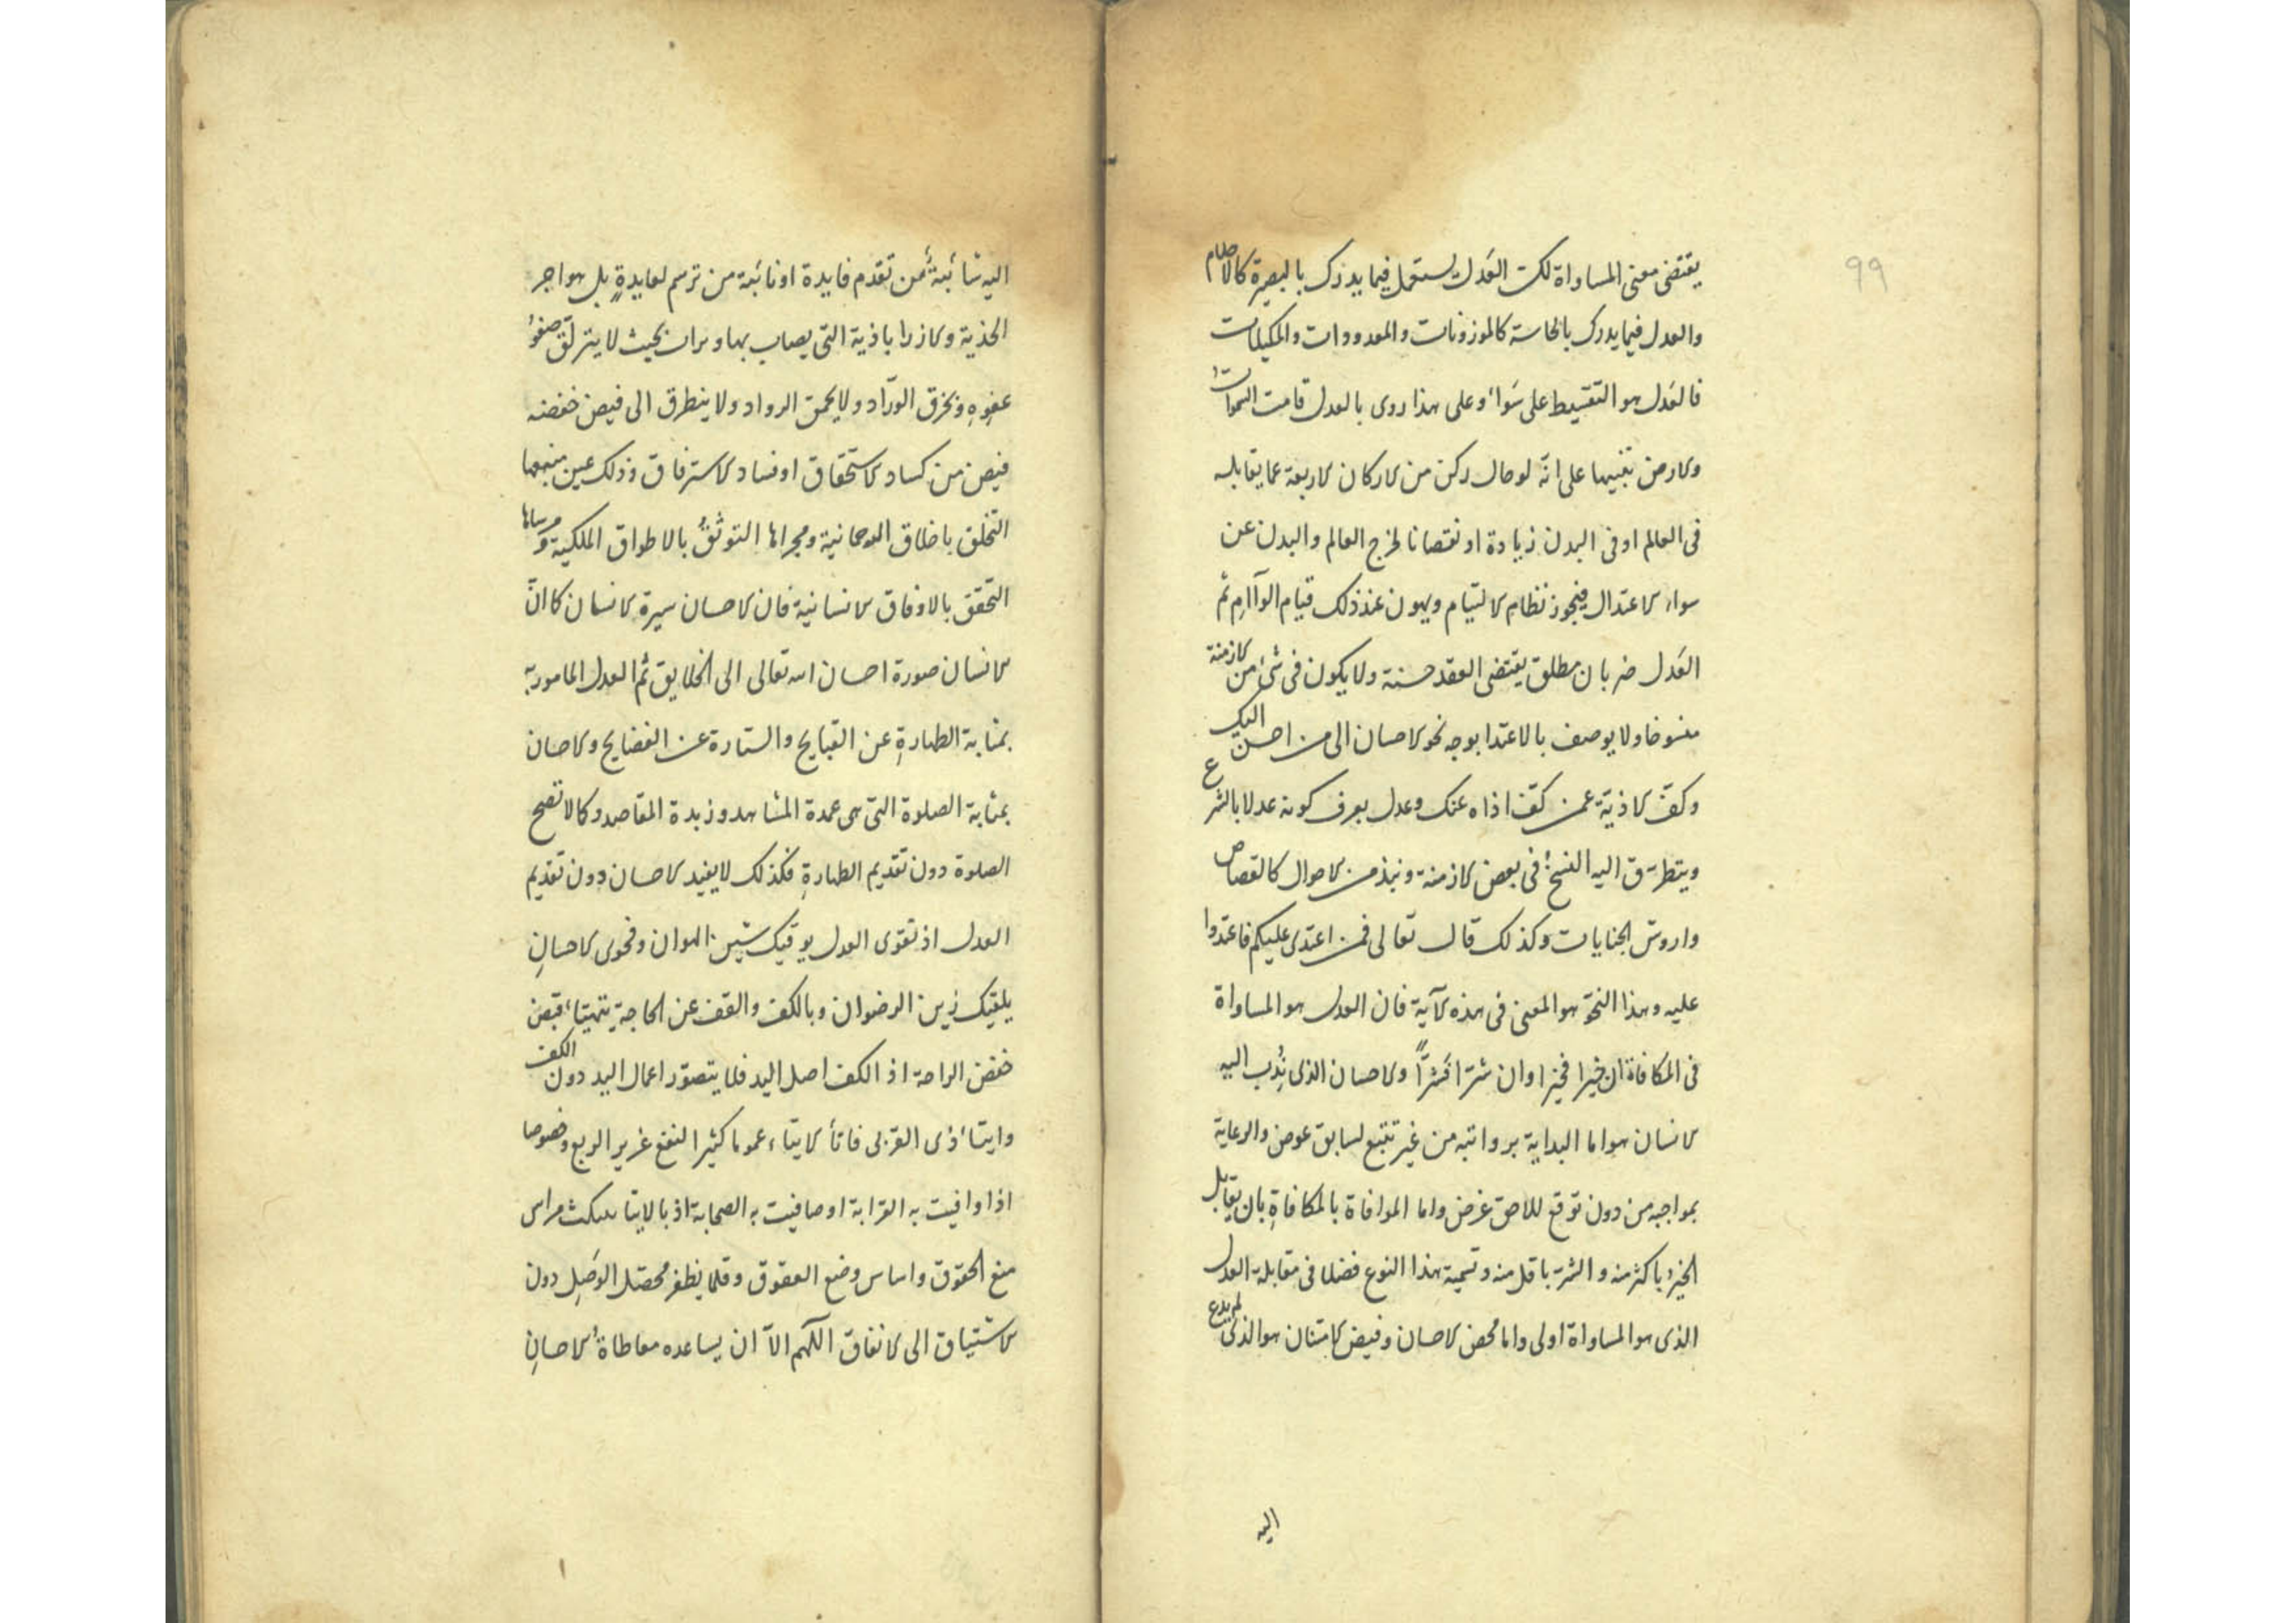 ٩٩
يقتضى معنى المساواة لكن العَدل يستعمل فيما يدرك بالبصيرة كالاحكام
والعدل فيما يدرك بالحاسة كالموزونات والمعدودات والمكيلات
فالعَدل هو التقسيط على سَوَاء وعلى هذا روى بالعدل قامت السموات
والارض تنبيها على انّه لو مال ركن من الاركان الاربعة عما يقابله
فى العالم او فى البدن زيادة او نقصانا لخرج العالم والبدن عن
سواء الاعتدال نظام الالتيام ويهون عند ذلك قيام ثم
العَدل ضربان مطلق يقتضى العقد حسنة ولا يكون فى شئ من الازمنة
منسوخا ولا يوصف بالاعتدا بوجه نحو الاحسان الى من احسن اليك
وكفّ الاذيّة عمن كفّ اذاه عنك وعدل يعرف كونه عدلا بالشرع
ويتطرّق اليه النسخ فى بعض الازمنة ونبذ من الاحوال كالقصاص
واروش الجنايات وكذلك قال تعالى فمن اعتدى عليكم فاعتدوا
عليه وهذا النحو هو المعنى فى هذه الآية فان العدل هو المساواة
فى المكافاة ان خيرا فخيرا وان شرّا فشرّاً والاحسان الذى نُدِب اليه
الانسان هو اما البداية من غير تتبع لسابق عوض والرعاية
بمواجبه من دون توقع للاحق غرض واما الموافاة بالمكافاةِ بان يقابل
الخيرُ باكثر منه والشر باقل منه وتسمية هذا النوع فضلا فى مقابلة العدل
الذى هو المساواة اولى واما محض الاحسان وفيض الامتنان هو الذى
اليه
اليه شائبةٌ من تقدم فايدة او نائبة من ترسم لعايدةٍ بل هو اجر
التى يصاب بها بحيث لا صفوُ
عفوهِ الورّاد ولا الرواد ولا يتطرق الى فيض
فيض من كساد الاستحقاق او فساد الاسترفاق وذلك عين منبعها
التخلق باخلاق ومجراها التوثقُ بالاطواق الملكية ومرساها
التحقق بالاوفاق الانسانية فان الاحسان سيرة الانسان كما انّ
الانسان صورة احسان الله تعالى الى الخلايق ثم العدل المامور به
بمثابة الطهارةِ عن القبايح والستارة عن الفضايح والاحسان
بمثابة الصلوة التى هى عمدة المشاهد وزبدة المقاصد وكما لا تصح
الصلوة دون تقديم الطهارةِ فكذلك لا يفيد الاحسان دون تقديم
العدل اذ تقوى العدل يوقيك شين الهوان وفحوى الاحسانِ
يلقيك زين الرضوان وبالكف عن الحاجة قبض
خفض الراحة اذ الكف اصل اليد فلا يتصوّر اعمال اليد دون الكف
وايتاء ذى القربى الايتاء عموما كثير النفع غزير الريع وخصوصا
اذا وافيت به القرابة او صافيت به الصحابة اذ بالايتا مراس
منع الحقوق واساس وضع العقوق وقلما يظفر الوصل دون
الاشتياق الى الانفاق اللهم الاّ ان يساعده معاطاةُ الاحسانِ